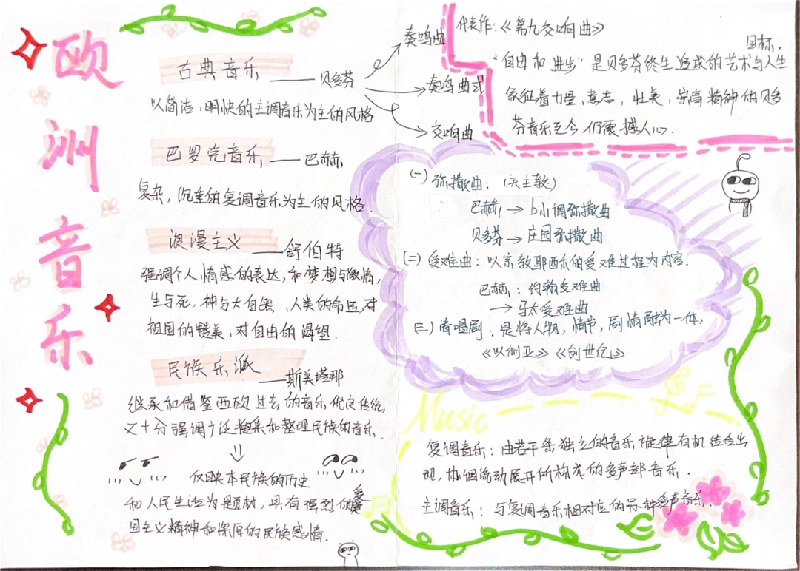 欧洲音乐
古典音乐——贝多芬
以简洁，明快的主调音乐为主的风格
奏鸣曲
奏鸣曲式
交响曲
巴罗克音乐——巴赫
复杂，沉重的复调音乐为主的风格
浪漫主义——舒伯特
强调个人情感的表达，和梦想与激情，
生与死，神与大自然，人类的命运，对
祖国的赞美，对自由的渴望．
民族乐派——斯美塔那
继承和借鉴西欧过去的音乐优良传统
又十分强调广泛搜集和整理民族的音乐．
仅映本民族的历史
和人民生活为题材，具有强烈的爱
国主义精神和深厚的民族感情．
代表作：《第九交响曲》
"自由和进步"是贝多芬终生追求的艺术与人生目标．
象征着力量，意志，壮美，崇高精神的贝多
芬音乐至今仍震撼人心．
(一) 弥撒曲．(天主教)
巴赫→b小调弥撒曲
贝多芬→庄园弥撒曲
(二) 受难曲：以宗教耶稣的受难过程为内容．
巴赫：约翰受难曲
→马太受难曲
(三) 清唱剧．是将人物，情节，剧情融为一体．
《以利亚》《创世纪》
Music
复调音乐：由若干条独立的音乐旋律有机结合出
现，协调流动展开所构成的多声部音乐．
主调音乐：与复调音乐相对应的另一种多声音乐．